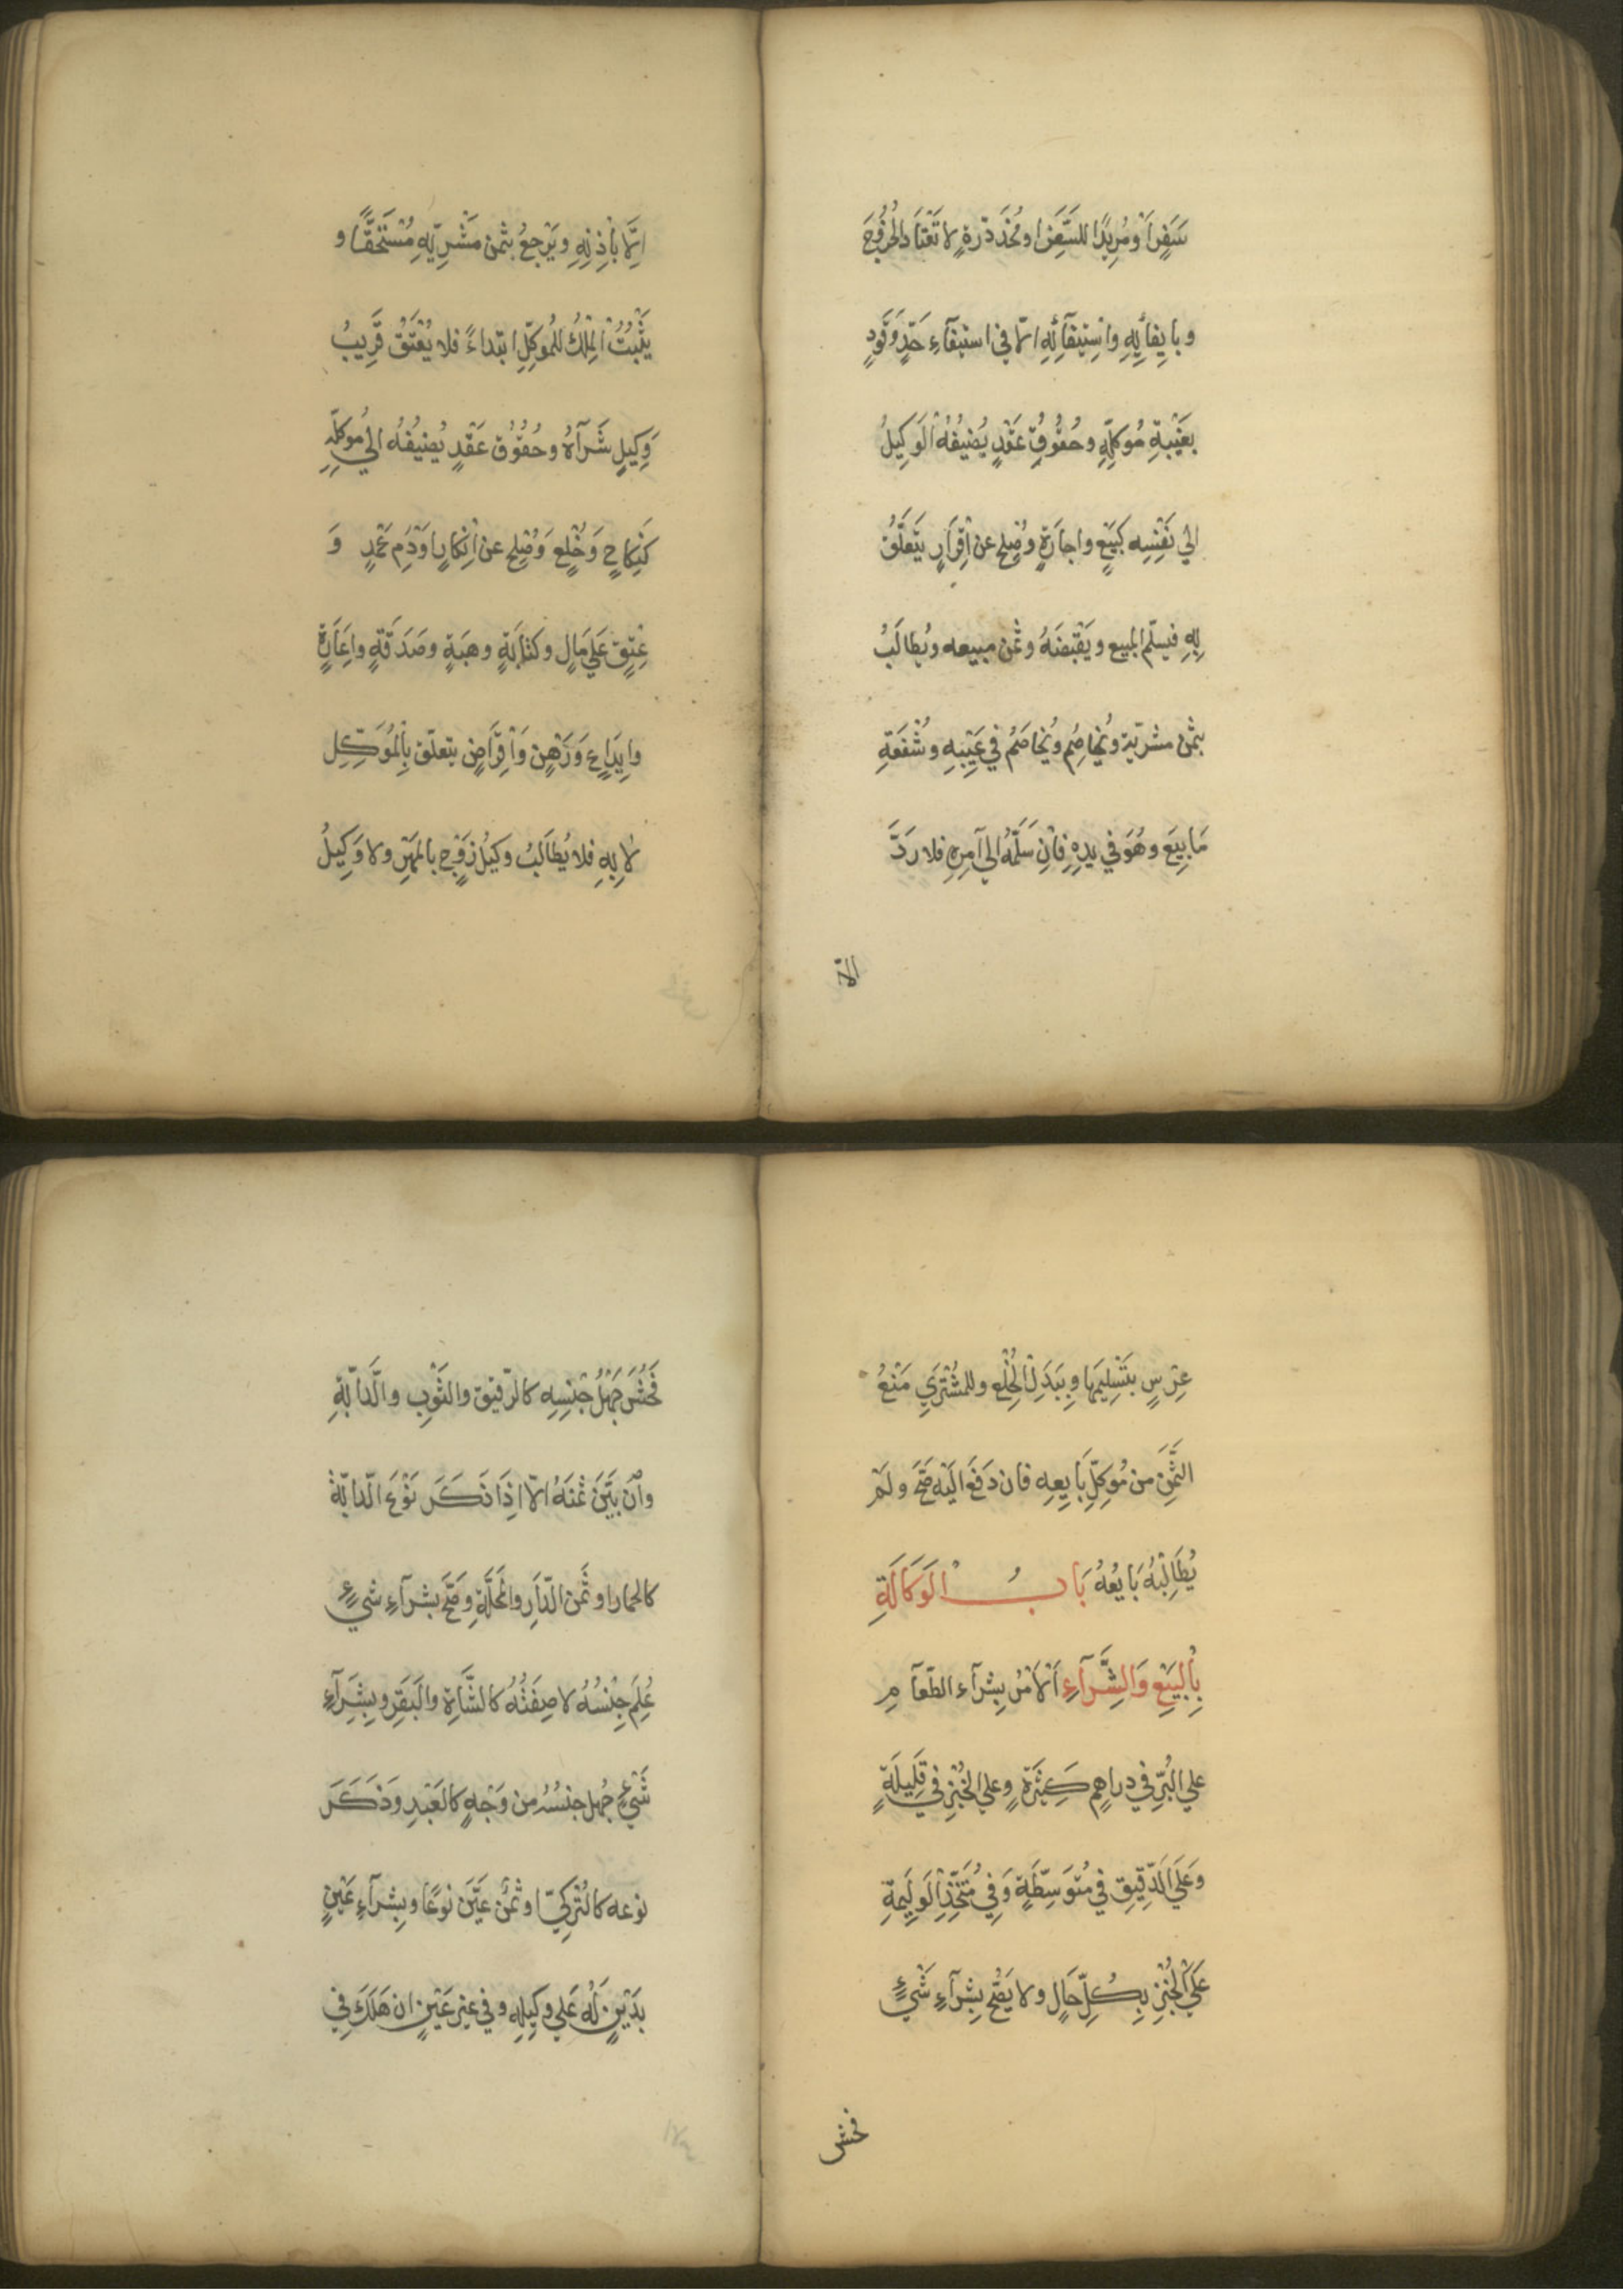 سَفَرٍ اَوْ مُرِيدًا لِلسَّفَرِ او مُخَدَّرَةٍ لا تَعْتَادُ الخُرُوجَ
و بايفَائِهِ واسْتِيفَآئِهِ الّا في استيفآءِ حَدٍّ وَقَوَدٍ
بغَيْبَةِ مُوَكِّلِهِ وحُقُوقُ عَقْدٍ يُضِيفُهُ الْوَكِيلُ
الي نَفْسِه كَبَيْعٍ واجارَةٍ وصُلحٍ عن اِقْرَارٍ يَتَعَلَّقُ
بِهِ فيسلّم المبيع ويَقْبِضَهُ وثمن مبيعه ويُطالَبُ
بثمن مشريّه ويُخاصِمُ ويُخاصَمُ في عَيْبِهِ وشُفْعَةِ
مَا بِيعَ وهُوَ في يدِهِ فَاِن سَلَّمَهُ الي آمِرِهِ فلا رَدَّ
الّا
اِلَّا بِاْذِنِهِ ويَرْجِعُ بثمن مَشْرِيِّهِ مُسْتَحَقًّا و
يَثْبُتُ الْمِلْكُ للمُوَكِّلِ ابتداءً فلا يُعْتَقُ قَرِيبُ
وَكِيلٍ شَرَآهُ وحُقُوق عَقْدٍ يُضِيفُه الي مُوَكِّلِهِ
كَنِكَاحٍ وَخُلعٍ وَصُلحٍ عن اِنْكَارٍ اَوْ دَمِ عَمْدٍ وَ
عِتْقٍ عَلَي مَالٍ وكتابَةٍ وهبَةٍ وصَدَقَةٍ واِعَارَةٍ
وايدَاعٍ وَرَهْنٍ وَاْقِرَاضٍ يتعلّق بِالْمُوَكِّلِ
لا بِهِ فلا يُطَالَبُ وكيلُ زَوْجٍ بالمَهْرِ ولا وَكِيلُ
عِرْسٍ بتَسْلِيمِهَا وبِبَدَلِ الْخُلْعِ وللمُشْتَرِي مَنْعُ
الثَّمَنِ من مُوَكِّلِ بَايِعِهِ فان دَفَعَ اليْه صَحَّ ولَمْ
يُطَالِبْهُ بَايعُهُ بَابُ الْوَكَالَةِ
بِالْبَيْعِ وَالشِّرَآءِ اَلْاَمْرُ بِشِرآءِ الطّعآمِ
علي البُرِّ في دراهم كَثِيْرَةٍ وعلي الخُبْزِ في قَلِيلَةٍ
وعَلَي الدَّقِيقِ في مُتَوَسِّطَةٍ وَفي مُتَّخِذِ الْوَلِيمَةِ
عَلَي الْخُبْزِ بِكُلِّ حَالٍ ولا يَصْحّ بِشِرَآءِ شَيْءٍ
فحش
فَحُشَ جَهْلُ جِنْسِهِ كالرّقيق والثّوْبِ والَّدابّةِ
واْن بَيَّنَ ثمنَهُ الّا اِذَا ذَكَرَ نَوْعَ الّدابّة
كالحمار او ثَمَن الدّارِ والمحَلَّةِ وَصَحَّ بشرآءِ شيءٍ
عُلِمَ جِنْسُهُ لا صِفَتُهُ كالشَّاةِ والبَقَرِ وبِشِرَآءِ
شَيْءٍ جُهِلَ جنسُهُ من وَجْهٍ كالعَبْدِ وَذَكَرَ
نوعه كالتُركيّ او ثَمَنٌ عَيَّنَ نَوْعًا وبِشرآءِ عَيْنٍ
بدَيْنٍ لَهُ عَلي وكِيلِهِ وفي غير عَيْنٍ ان هَلَكَ في